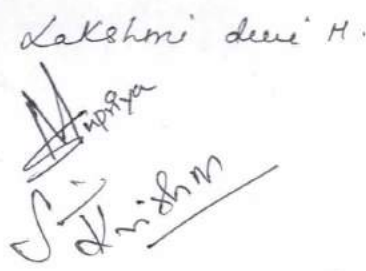 Lakshmi devi M.
Mupriya
S. Krishna